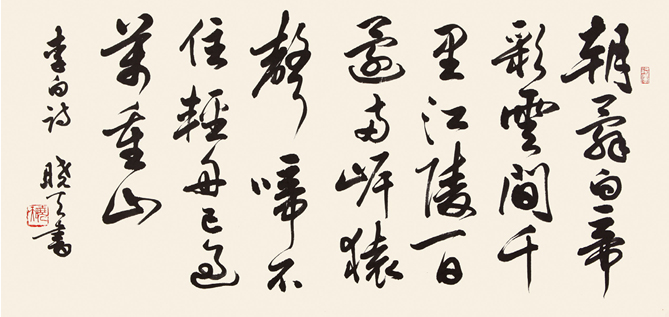 朝辭白帝
彩雲間千
里江陵一日
還兩岸猿
聲啼不
住輕舟已過
萬重山
李白詩 曉天書